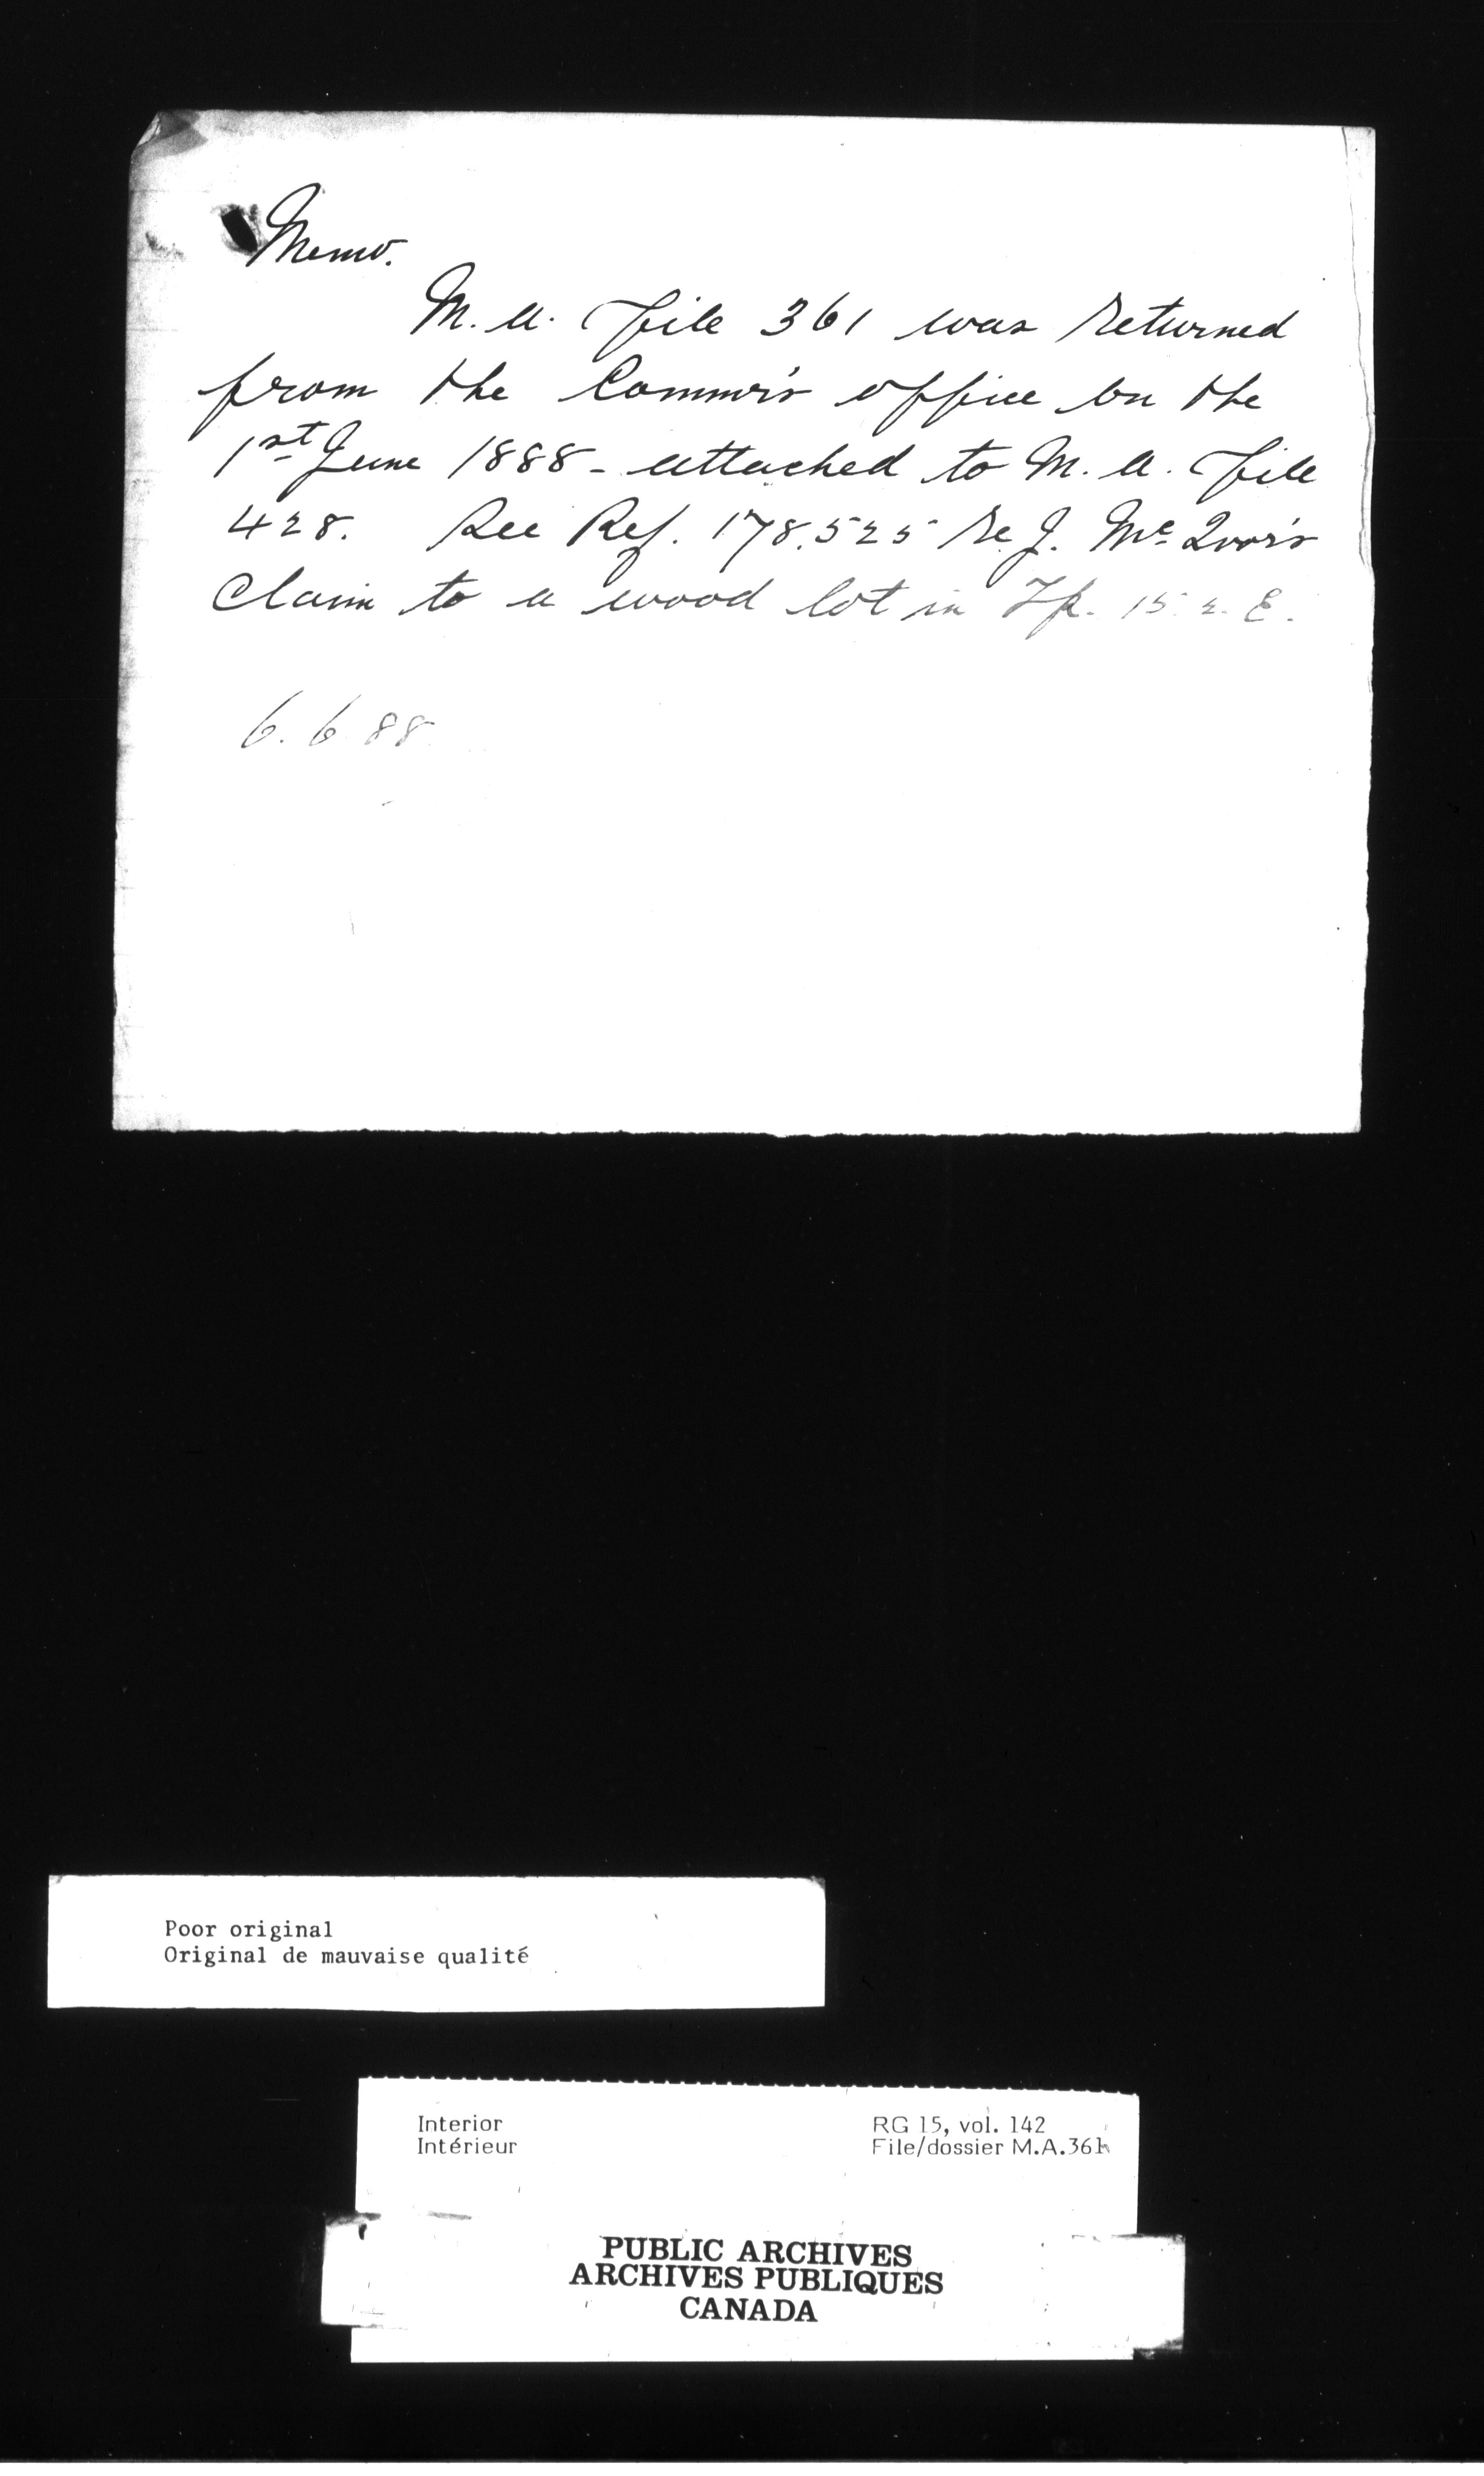 Memo.
M. A. File 361 was returned
from the Commr's office on the
1st June 1888 - attached to M. A. File
428. See Ref. 178.525 re J. Mc Ivor's
Claim to a wood lot in Tp. 15. 2. E.
6. 6 88
Poor original
Original de mauvaise qualité
Interior
Intérieur
RG 15, vol. 142
File/dossier M.A.361
PUBLIC ARCHIVES
ARCHIVES PUBLIQUES
CANADA